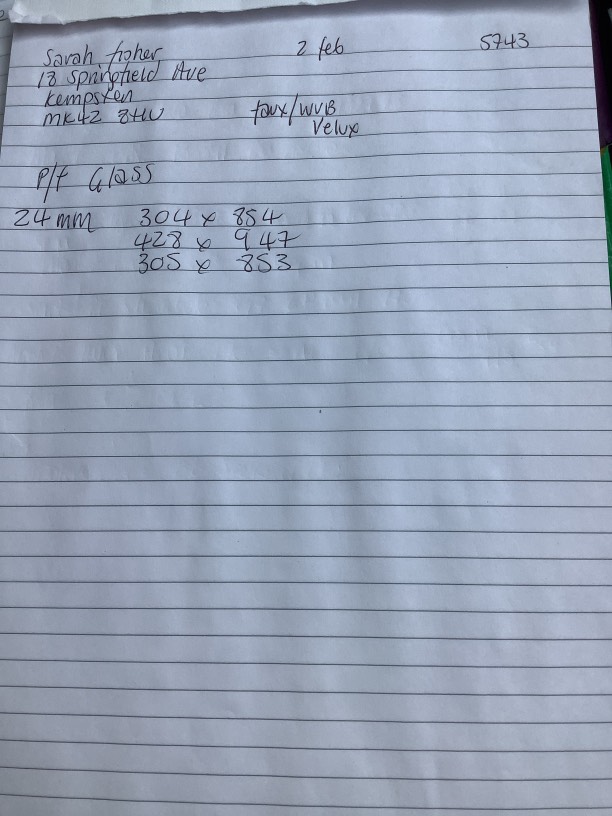 Sarah fisher 2 feb 5743
18 Springfield Ave
Kempsten
MK42 8HU faux/WVB
Velux
P/f Glass
24mm 304 x 854
428 x 947
305 x 853